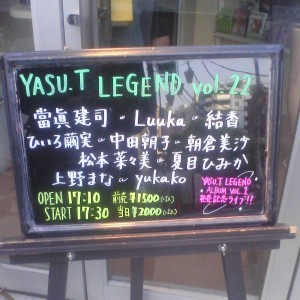 YASU.T LEGEND vol.22
當眞建司 〜 Luuka 〜 結香
ひいろ繭実 〜 中田朝子 〜 朝倉美沙
松本菜々美 〜 夏目ひみか
上野まな 〜 yukako
OPEN 17:10 前売 ¥1500
START 17:30 当日 ¥2000
YASU.T LEGEND
ALBUM vol.1
発売記念ライブ!!